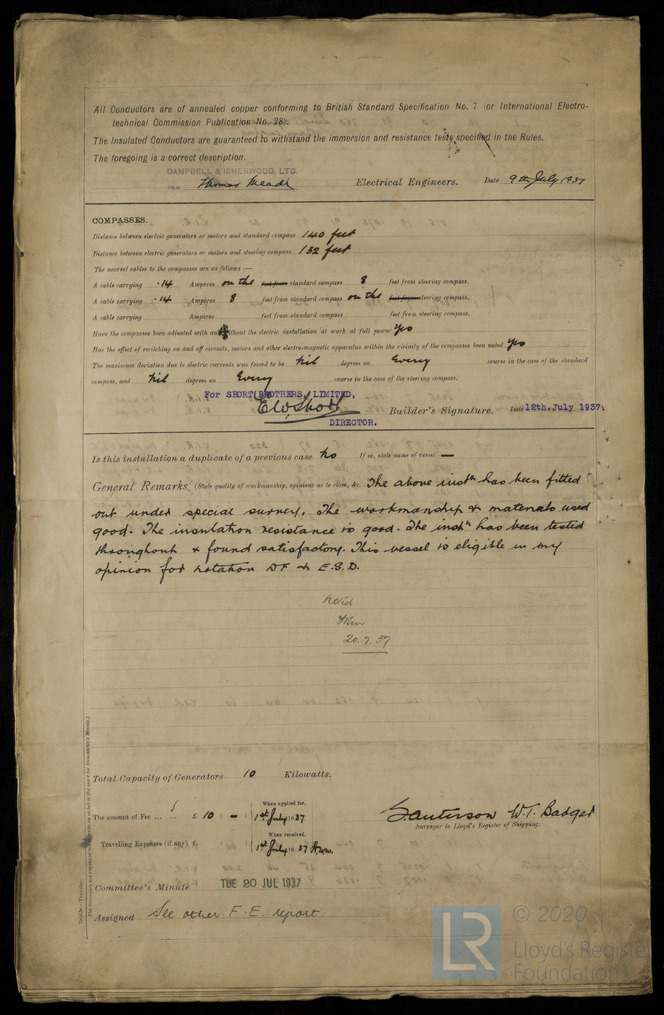 All Conductors are of annealed copper conforming to British Standard Specification No. 7 (or International Electro-
technical Commission Publication No. 28).
The Insulated Conductors are guaranteed to withstand the immersion and resistance tests specified in the Rules.
The foregoing is a correct description.
CAMPBELL & ISHERWOOD, LTD.
PER Thomas Meade Electrical Engineers. Date 9th July 1937
COMPASSES.
Distance between electric generators or motors and standard compass 140 feet
Distance between electric generators or motors and steering compass 132 feet
The nearest cables to the compasses are as follows:—
A cable carrying .14 Ampères on the feet from standard compass 8 feet from steering compass.
A cable carrying .14 Ampères 8 feet from standard compass on the feet from steering compass.
A cable carrying Ampères feet from standard compass feet from steering compass.
Have the compasses been adjusted with and without the electric installation at work at full power yes
Has the effect of switching on and off circuits, motors and other electro-magnetic apparatus within the vicinity of the compasses been noted yes
The maximum deviation due to electric currents was found to be nil degrees on Every course in the case of the standard
compass, and nil degrees on Every course in the case of the steering compass.
For SHORT BROTHERS, LIMITED,
Builder's Signature. Date 12th. July 1937.
DIRECTOR.
Is this installation a duplicate of a previous case no If so, state name of vessel —
General Remarks. (State quality of workmanship, opinions as to class, &c. The above instn has been fitted
out under special survey. The workmanship & materials used
good. The insulation resistance is good. The instn has been tested
throughout & found satisfactory. This vessel is eligible in my
opinion for notation DF & E.S.D.
Noted
20.7.37
Total Capacity of Generators 10 Kilowatts.
When applied for,
The amount of Fee ... ... £ 10 : - : 1st July 1937
When received,
Travelling Expenses (if any) £ : : 1st July 1937
W.T. Badger
Surveyor to Lloyd's Register of Shipping.
Committee's Minute TUE 20 JUL 1937
Assigned See other F.E. report
LR
© 2020
Lloyd's Register
Foundation